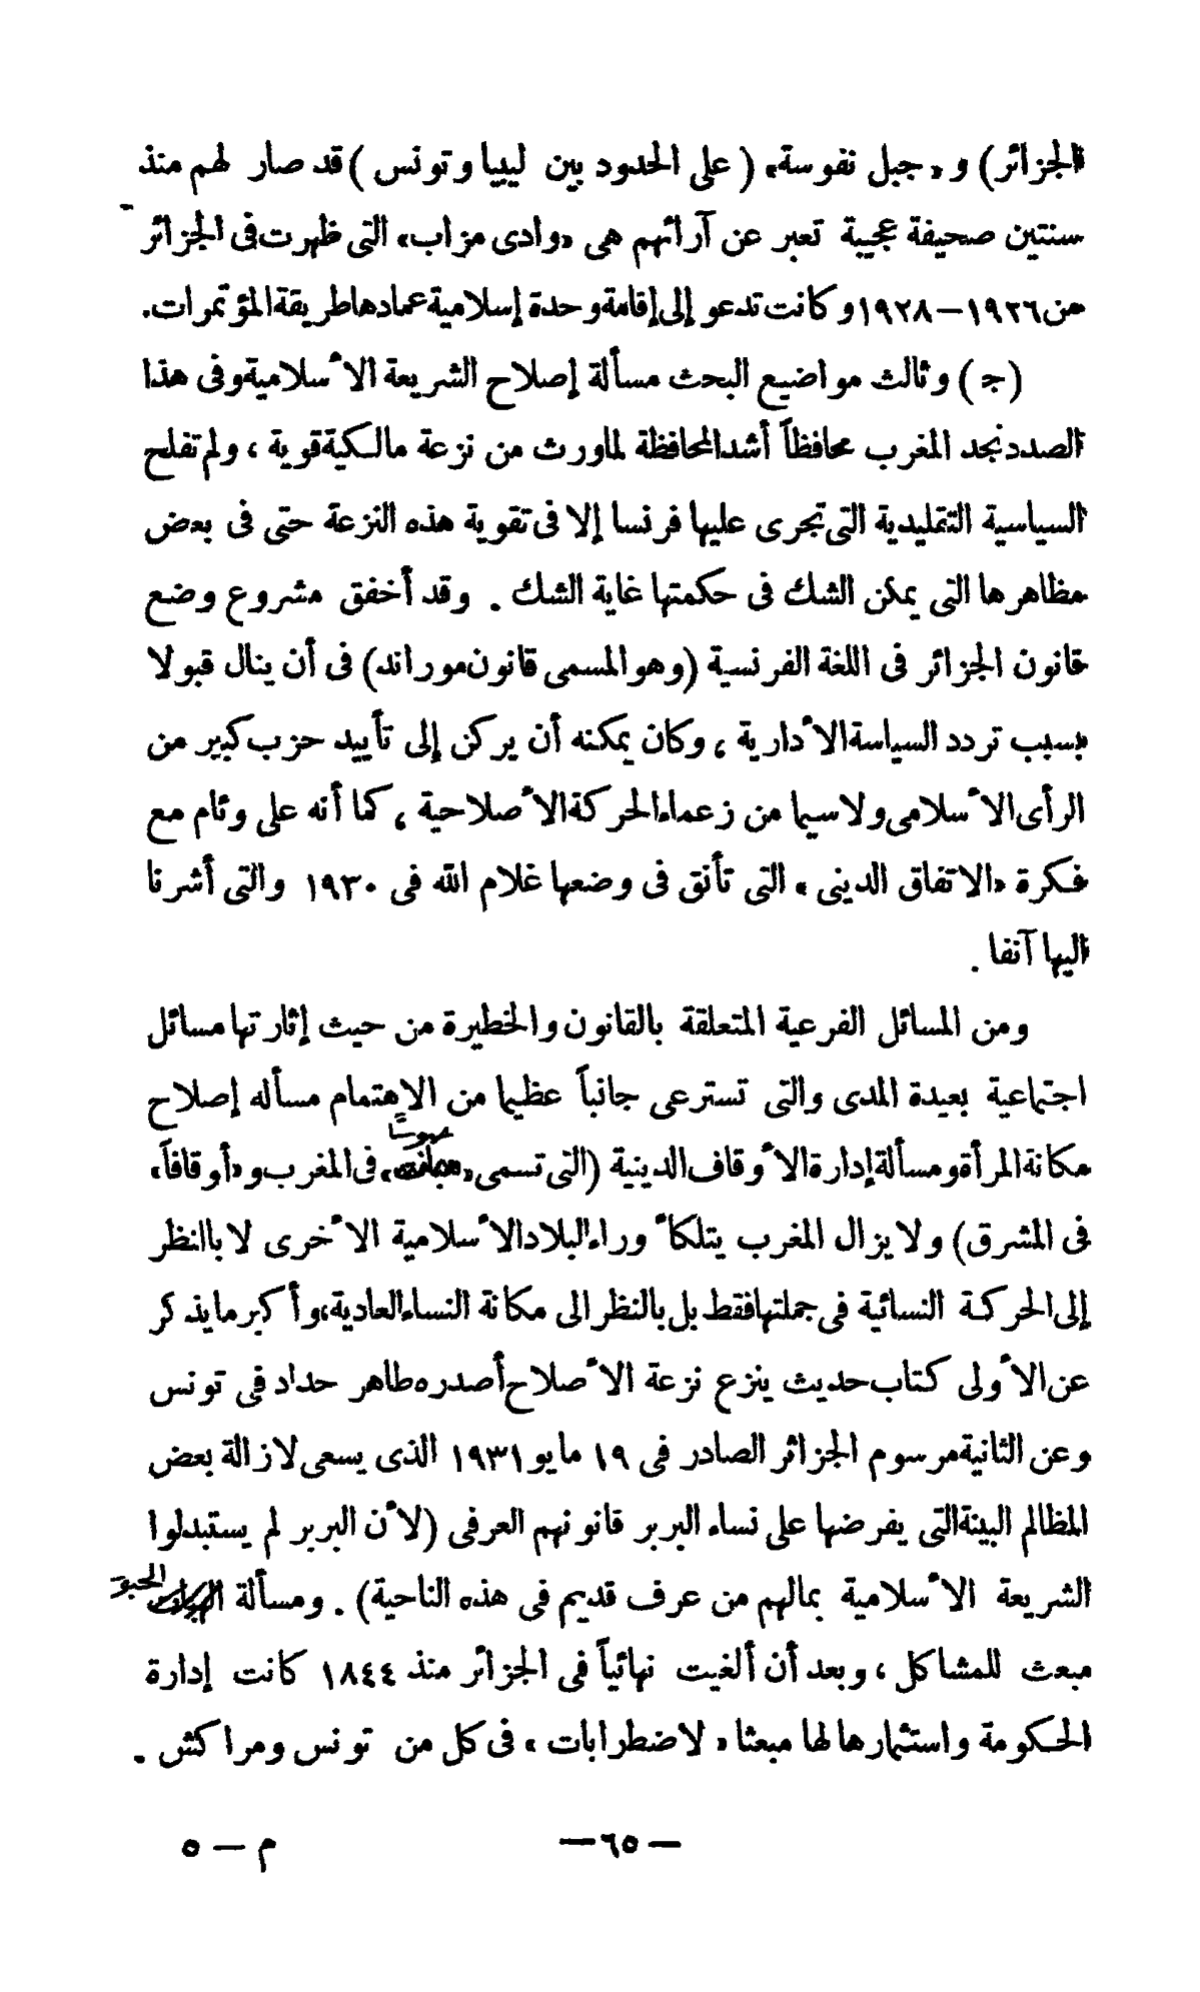 الجزائر) و «جبل نفوسة» (على الحدود بين ليبيا وتونس) قد صار لهم منذ
سنتين صحيفة عجيبة تعبر عن آرائهم هى «وادى مزاب» التى ظهرت فى الجزائر
من ١٩٢٦–١٩٢٨ وكانت تدعو إلى إقامة وحدة إسلامية عمادها طريقة المؤتمرات.
(ج) وثالث مواضيع البحث مسألة إصلاح الشريعة الأسلامية وفى هذا
الصدد نجد المغرب محافظاً أشد المحافظة لماورث من نزعة مالكية قوية ، ولم تفلح
السياسية التقليدية التى تجرى عليها فرنسا إلا فى تقوية هذه النزعة حتى فى بعض
مظاهرها التى يمكن الشك فى حكمتها غاية الشك . وقد أخفق مشروع وضع
قانون الجزائر فى اللغة الفرنسية (وهو المسمى قانون موراند) فى أن ينال قبولا
بسبب تردد السياسة الأدارية ، وكان يمكنه أن يركن إلى تأييد حزب كبير من
الرأى الأسلامى ولاسيما من زعماء الحركة الأصلاحية ، كما أنه على وئام مع
فكرة «الاتفاق الدينى» التى تأنق فى وضعها غلام الله فى ١٩٣٠ والتى أشرنا
اليها آنفا .
ومن المسائل الفرعية المتعلقة بالقانون والخطيرة من حيث إثارتها مسائل
اجتماعية بعيدة المدى والتى تسترعى جانباً عظيما من الاهتمام مسأله إصلاح
حبوساً
مكانة المرأة ومسألة إدارة الأوقاف الدينية (التى تسمى « » فى المغرب و«أوقافاً»
فى المشرق) ولايزال المغرب يتلكأ وراء البلاد الأسلامية الأخرى لا باالنظر
إلى الحركة النسائية فى جملتها فقط بل بالنظر الى مكانة النساء العادية، وأكبر مايذكر
عن الأولى كتاب حديث ينزع نزعة الأصلاح أصدره طاهر حداد فى تونس
وعن الثانية مرسوم الجزائر الصادر فى ١٩ مايو ١٩٣١ الذى يسعى لازالة بعض
المظالم البينة التى يفرضها على نساء البربر قانونهم العرفى (لأن البربر لم يستبدلوا
الشريعة الأسلامية بمالهم من عرف قديم فى هذه الناحية) . ومسألة الحبوس
مبعث للمشاكل ، وبعد أن ألغيت نهائياً فى الجزائر منذ ١٨٤٤ كانت إدارة
الحكومة واستثمارها لها مبعثا « لاضطرابات » فى كل من تونس ومراكش .
— ٦٥ —
م — ٥